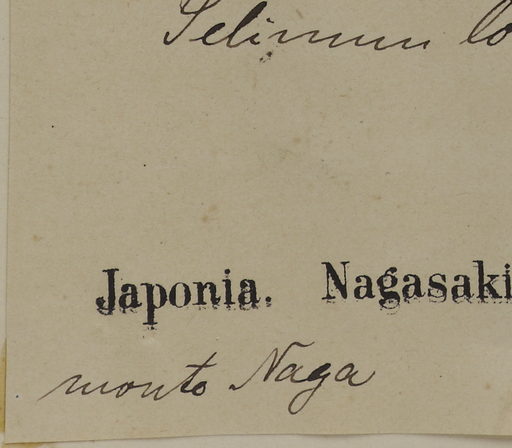 Selinum lo
Japonia. Nagasaki
monto Naga